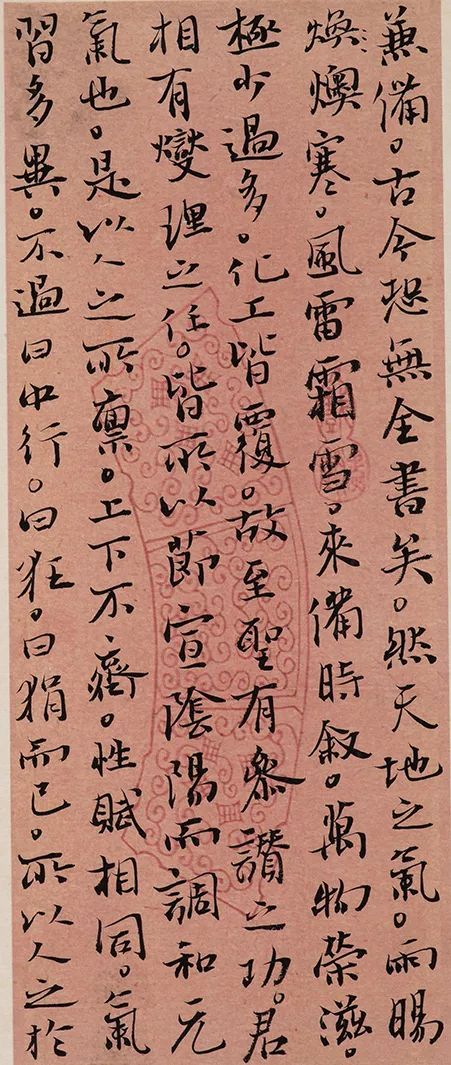 兼備。古今恐無全書矣。然天地之氣。雨暘
煥燠寒。風雷霜雪。來備時敘。萬物榮滋。
極少過多。化工皆覆。故至聖有參讚之功。君
相有燮理之任。皆所以節宣陰陽而調和元
氣也。是以人之所稟。上下不齊。性賦相同。氣
習多異。不過曰中行。曰狂。曰狷而已。所以人之於